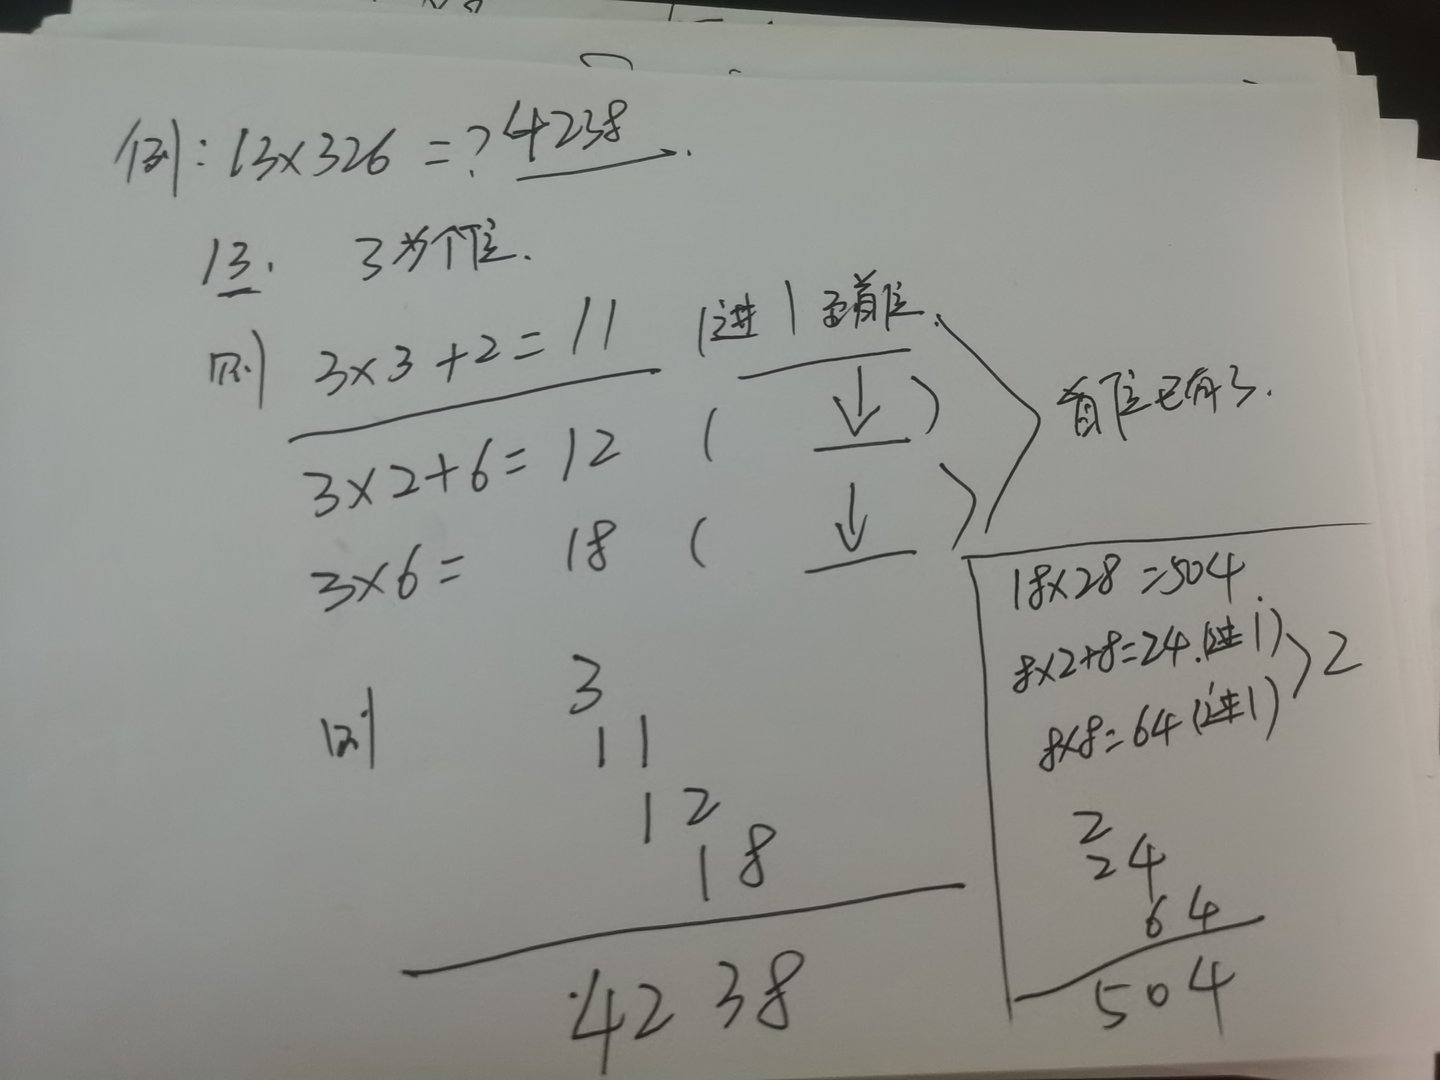 例：13×326 =？4238.
13. 3为个位.
则 3×3+2=11 (进1至首位.
3×2+6= 12 ( ↓ )
首位已有3.
3×6= 18 ( ↓ )
则 3
11
12
18
4238
18×28=504.
8×2+8=24.(进1) 2
8×8=64(进1)
2
24
64
504